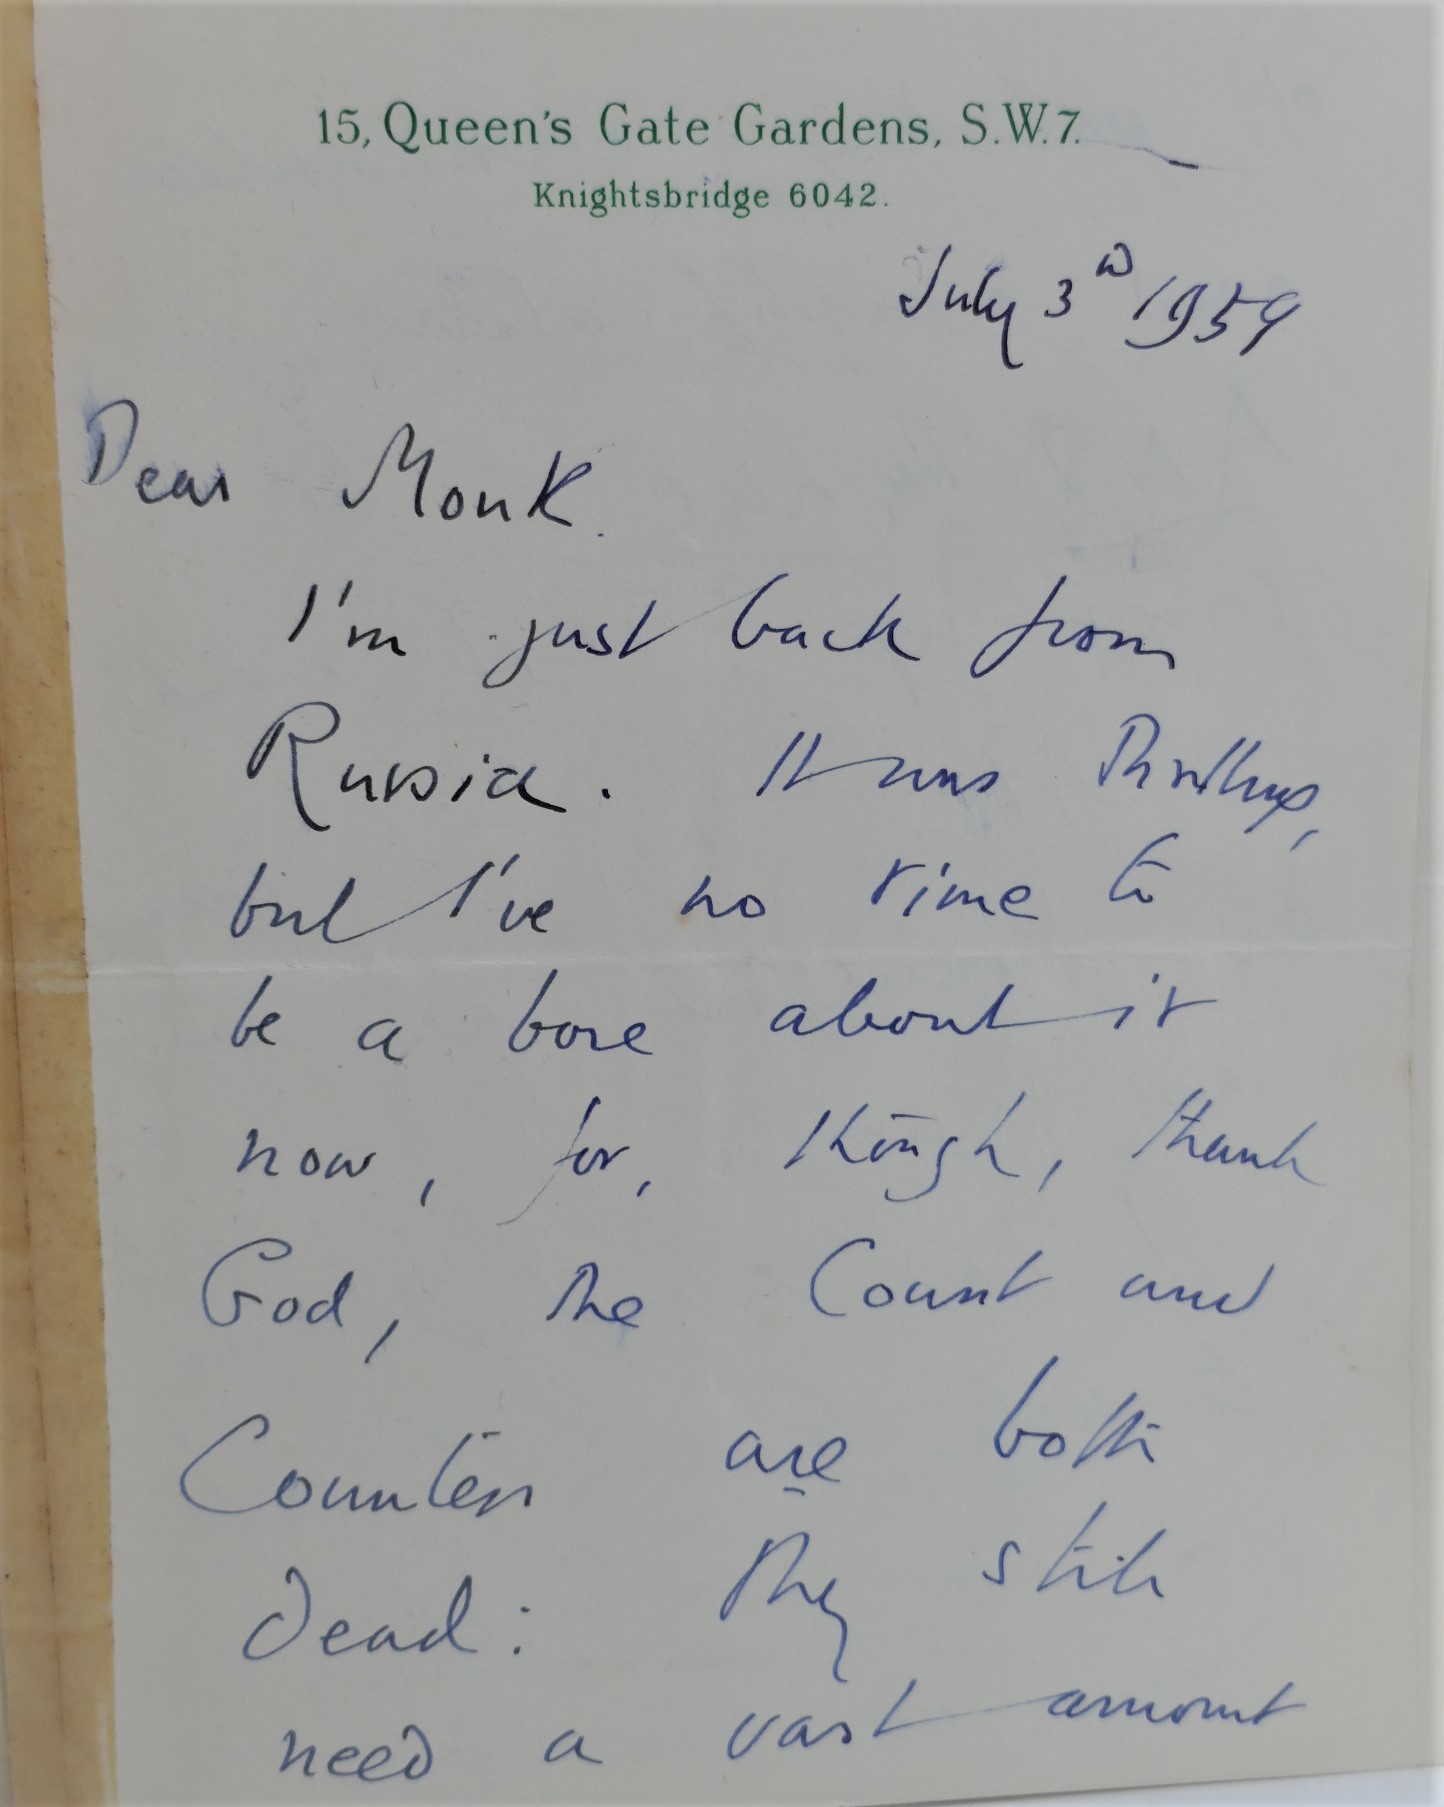 15, Queen's Gate Gardens, S.W.7.
Knightsbridge 6042.
July 3rd 1959
Dear Monk.
I'm just back from
Russia. It was thrilling,
but I've no time to
be a bore about it
now, for, though, thank
God, the Count and
Countess are both
dead: they still
need a vast amount